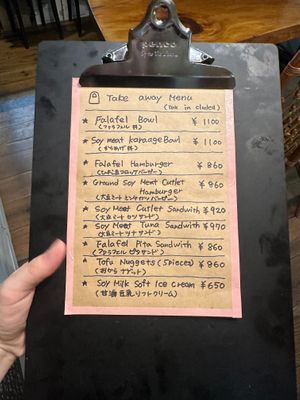 Take away Menu
(Tax in cluded)
★ Falafel Bowl ¥1100
(ファラフェル丼)
★ Soy meat karaage Bowl ¥1100
(からあげ丼)
★ Falafel Hamburger ¥860
★ Ground Soy Meat Cutlet ¥960
Hamburger
(大豆ミートミンチカツバーガー)
★ Soy Meet Cutlet Sandwith ¥920
(大豆ミートカツサンド)
★ Soy Meat Tuna Sandwith ¥970
(大豆ミートツナサンド)
★ Falafel Pita Sandwith ¥860
(ファラフェルピタサンド)
★ Tofu Nuggets (5pieces) ¥860
(おからナゲット)
★ Soy Milk Soft Ice Cream ¥650
(甘酒豆乳ソフトクリーム)